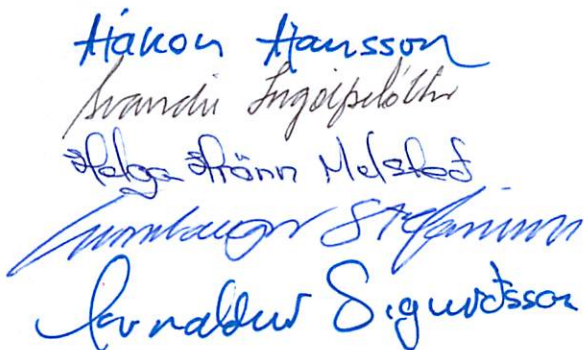 Hákon Hansson
Svandís Ingólfsdóttir
Helga Hrönn Melsteð
Gunnlaugur Stefánsson
Arnaldur Sigurðsson